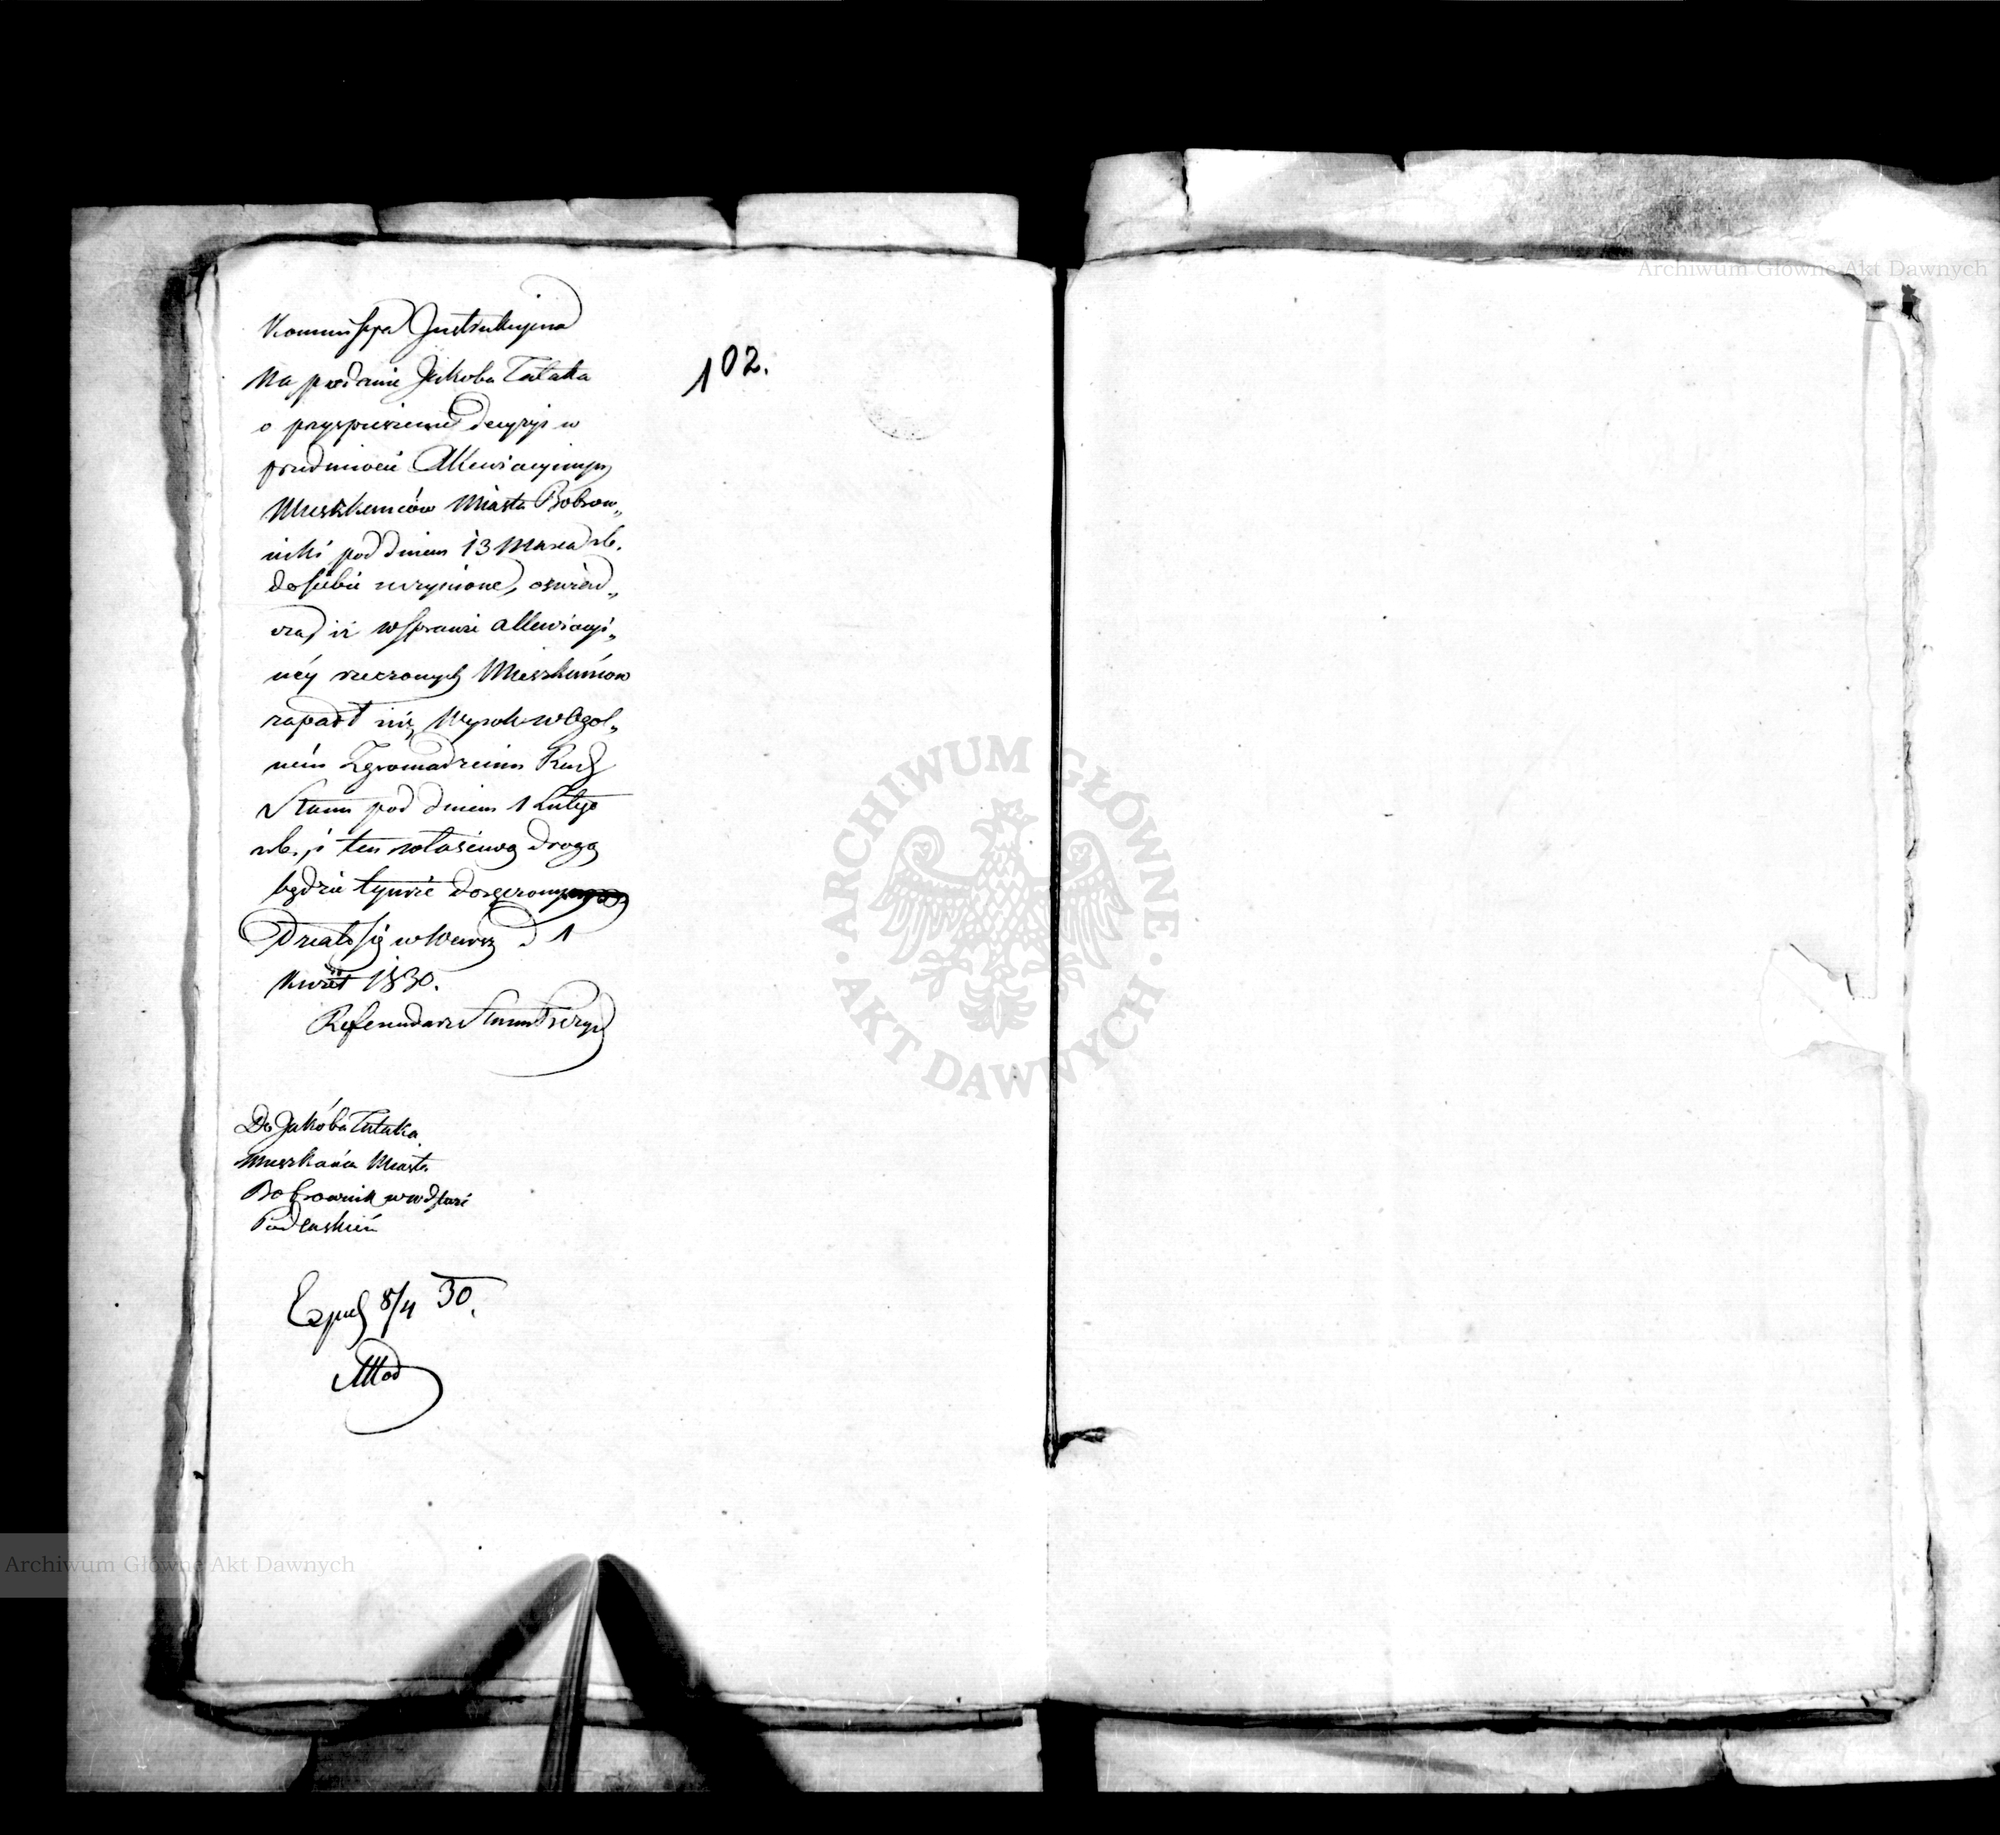 Kommissya Instrukcyjna
102.
Na podanie Jakoba Tulaka
o przyspieszenie decyzyi w
przedmiocie Allewiacyinym
Mieszkańców Miasta Bobrow„
nicki pod dniem 13 Marca rb.
do siebie uczynione, oświad„
cza, iż w sprawie allewiacyi„
néy rzeczonych Mieszkańców
zapadł iuż Wyrok w Ogol„
ném Zgromadzeniu Rady
Stanu pod dniem 1 Lutego
rb. i ten właściwą drogą
będzie tymże doręczony
Działo się w Warsz d 1
Kwiet 1830.
Referendarz Stanu Prezyd
Do Jakóba Tulaka
mieszkańca Miasta
Bobrownik w wdztwie
Podlaskiém
Exped 8/4 30.
Archiwum Główne Akt Dawnych
Archiwum Główne Akt Dawnych
ARCHIWUM GŁÓWNE · AKT DAWNYCH ·